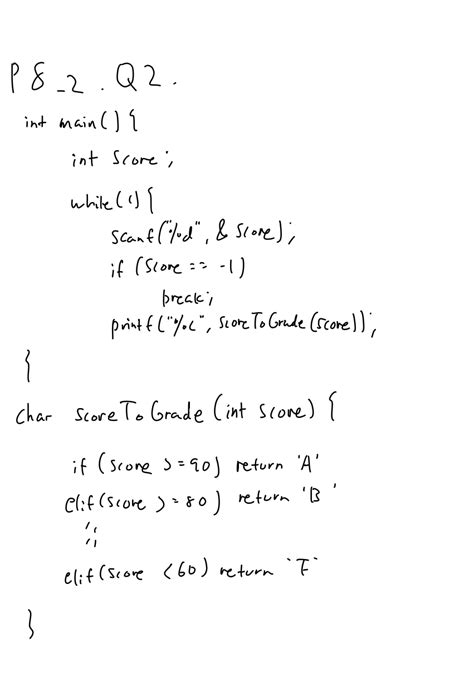 P8_2. Q2.
int main() {
int score;
while(1) {
scanf("%d", & score);
if (score == -1)
break;
printf("%c", scoreToGrade(score));
}
char scoreToGrade (int score) {
if (score >= 90) return 'A'
elif(score >= 80) return 'B'
elif(score < 60) return 'F'
}